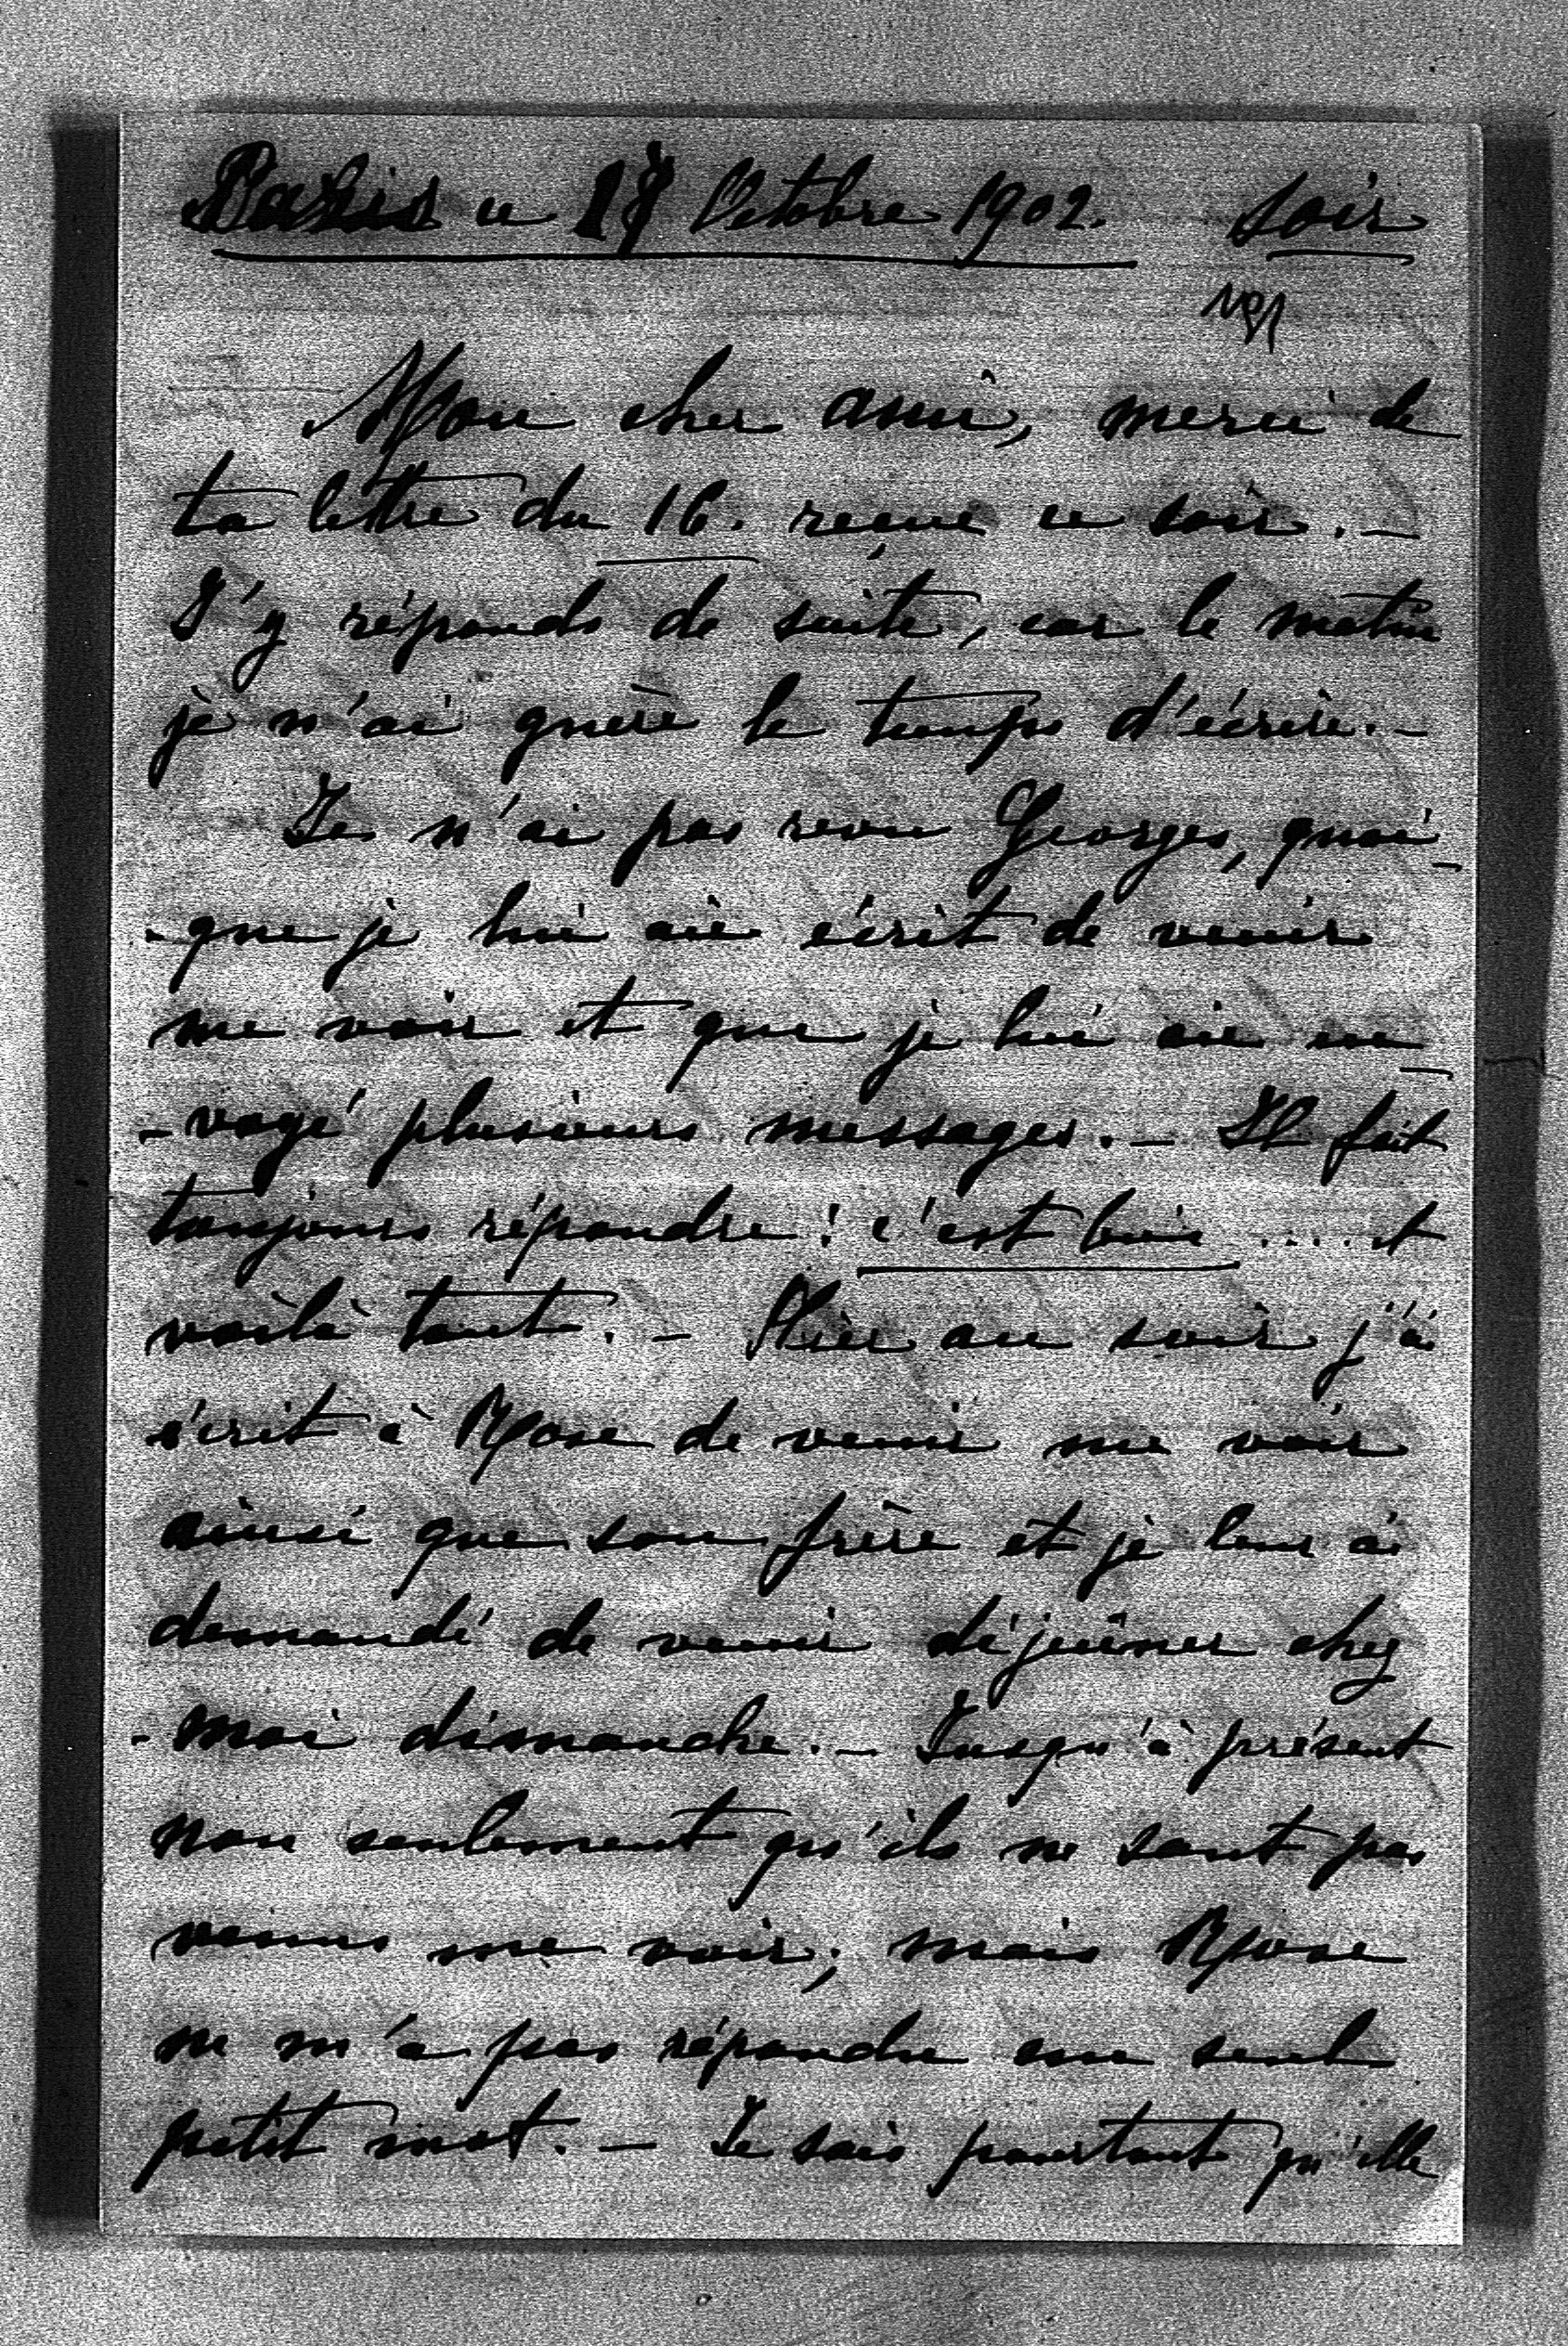 Paris ce 18 Octobre 1902. Soir
Mon cher ami, merci de
ta lettre du 16. reçue ce soir. —
J'y réponds de suite, car le matin
je n'ai guère le temps d'écrire. —
Je n'ai pas revu Georges, quoi-
-que je lui aie écrit de venir
me voir et que je lui aie en-
-voyé plusieurs messages. — Il fait
toujours répondre : c'est bien ..... et
voilà tout. — Hier au soir j'ai
écrit à Rose de venir me voir
ainsi que son frère et je leur ai
demandé de venir déjeûner chez
-moi dimanche. — Jusqu'à présent
non seulement qu'ils ne sont pas
venus me voir, mais Rose
ne m'a pas répondu un seul
petit mot. — Je sais pourtant qu'elle